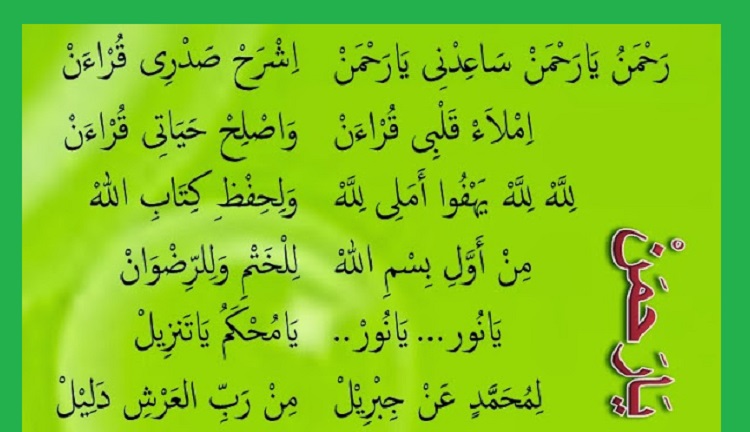 رَحْمَنُ يَارَحْمَنْ سَاعِدْنِى يَارَحْمَنْ اِشْرَحْ صَدْرِى قُرْاءَنْ
اِمْلاَءْ قَلْبِى قُرْاءَنْ وَاصْلِحْ حَيَاتِى قُرْاءَنْ
لِلَّهْ لِلَّهْ يَهْفُوا أَمَلِى لِلَّهْ وَلِحِفْظِ كِتَابِ اللهْ
مِنْ أَوَّلِ بِسْمِ اللهْ لِلْخَتْمِ وَلِلرِّضْوَانْ
يَانُور... يَانُورْ.. يَامُحْكَمُ يَاتَنزِيلْ
لِمُحَمَّدٍ عَنْ جِبْرِيْلْ مِنْ رَبِّ العَرْشِ دَلِيْلْ
يَارَحمَنْ